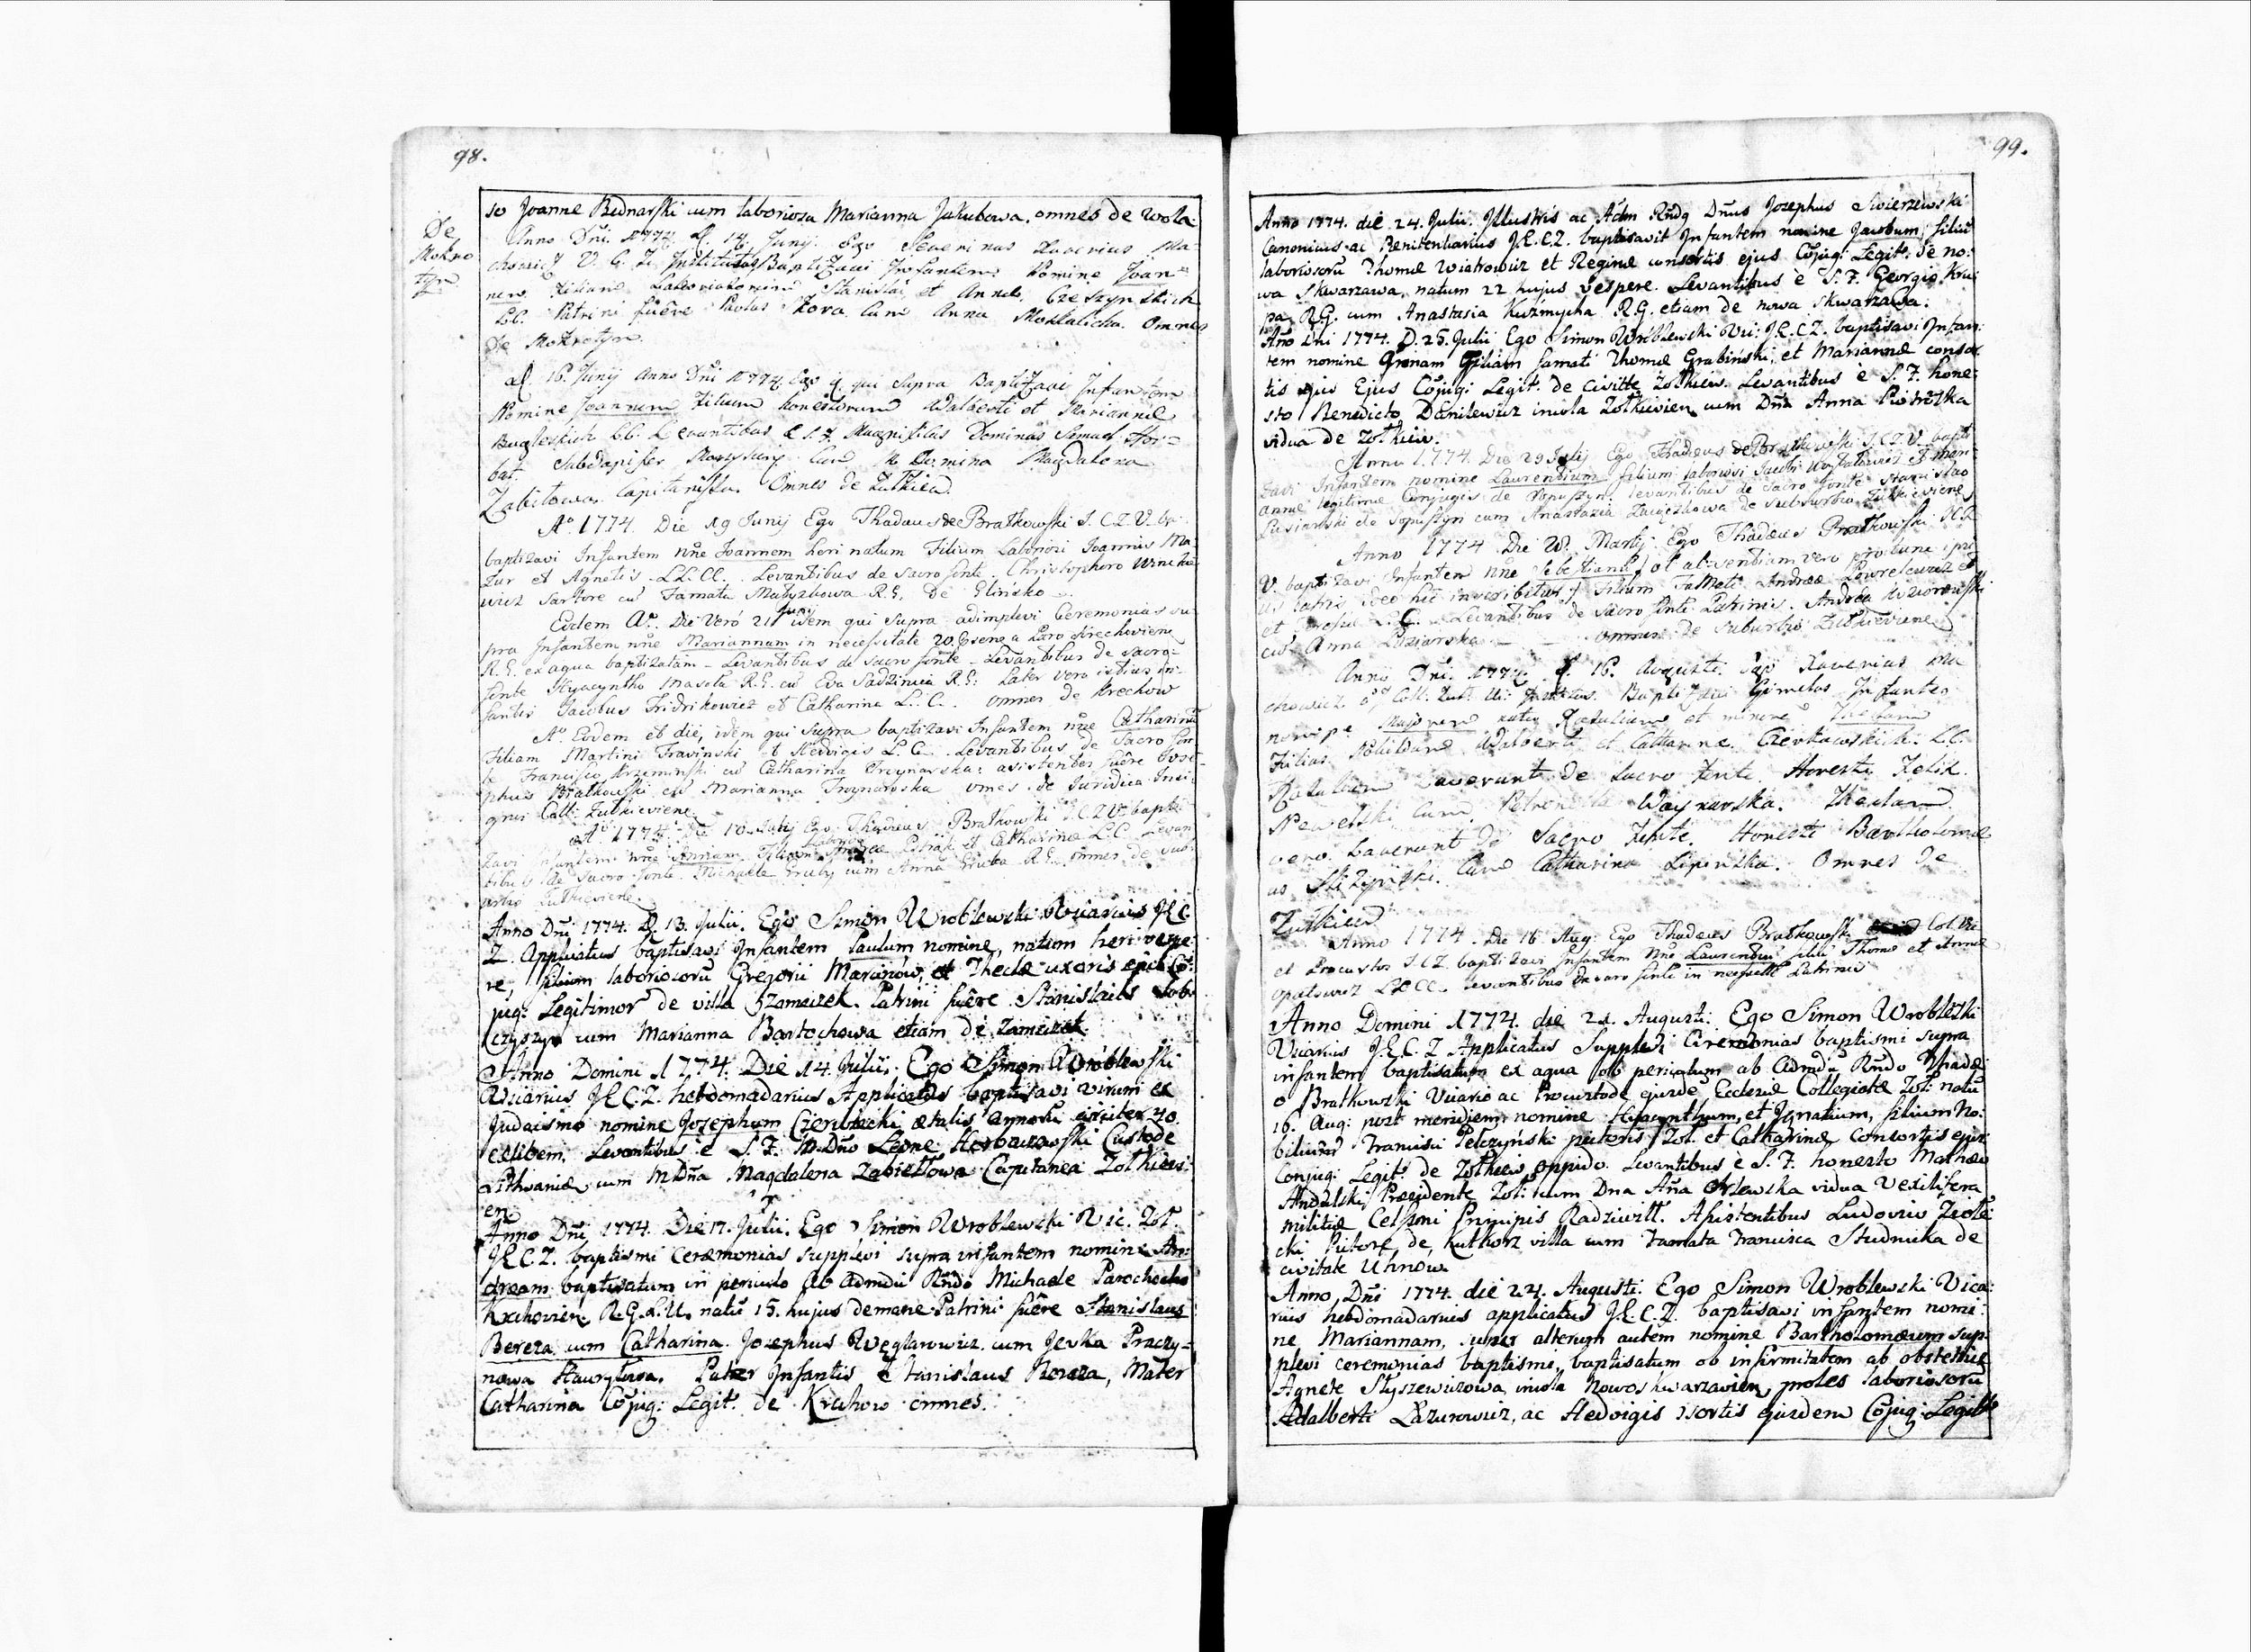 98.
so Joanne Bednarski cum laboriosa Marianna Jakubowa. omnes de Wola.
De Mokrotyn
Anno Dni. 1774. d. 14 Junij. Ego Severinus Xaverius Ma-
chowicz V. C. Z. Institutus Baptizavi Infantem Nomine Joan=
nem Filium Laboriosorum Stanislai et Annae Czeszynskich
CC. Patrini fuêre Paulus Kova cum Anna Moskalicha. Omnes
de Mokrotyn.
d. 16. Junij Anno Dni 1774 Ego qui Supra Baptizavi Infantem
Nomine Joannem Filium honestorum Adalberti et Mariannae
CC. Levantibus e S. F. Magnificus Dominus Samuel Hor=
bat. Subdapifer cum M. Domina Magdalena
Zabitowa. Capitanissa. Omnes de Zulkiew.
Ao. 1774. Die 19 Junij Ego Thadaeus de Bratkowski I. C. Z. V. ba-
baptizavi Infantem nne Joannem heri natum Filium Laboriosi Joannis Ma-
zur et Agnetis LL. CC. Levantibus de sacro fonte Christophoro Winckie
wicz Sartore cu Famata Matyszkowa R. G. De Glinsko
Eodem Ao. Die verò 21 Junij idem qui supra adimplevi Ceremonias su-
pra Infantem nne Mariannam in necessitate 20. a Paro Krechoviene
R. G. ex aqua baptizatam - Levantibus de sacro fonte - Levantibus de sacro-
fonte Hyacyntho Masela R. G. cu Eva Sadzinica R. G: Pater vero istius in-
fantis Jacobus Fridrikowicz et Catharina L. C. omnes de Krechow
Ao. Eodem et die, idem qui supra baptizavi Infantem nne Catharina
Filiam Martini Trawinski et Hedvigis L. C. Levantibus de Sacro fon-
te Francisco Krzeminski cu Catharina Troynarska: asistentes fuêre Jose-
phus Bratkowski cu Marianna Troynarska omes de Juridica Insi-
gnis Coll: Zulkieviene
Ao 1774. Die 10 Julij Ego Thadeus Bratkowski I. C. Z. V. bapti-
zavi Infantem nne Annam Filiam Laboriosi Andreae Petrak et Catharinae L. C. Levan
tibus de Sacro fonte Michaele Gruby cum Anna Gruba R. G. omnes de sub-
urbio Zulkieviene.
Anno Dni 1774. D. 13. Julii. Ego Simon Wroblewski Vicarius I. E. C.
Z. Applicatus baptisavi Infantem Paulum nomine, natum heri vespe-
re, filium laboriosoru Gregorii Marcinów, et Theclae uxoris ejus Co-
jug: Legitimor de villa Zameczek. Patrini fuêre Stanislaus Sob-
czyszyn cum Marianna Bartochowa etiam de Zameczek.
Anno Domini 1774. Die 14. Julii. Ego Simon Wroblewski
Vicarius I. E. C. Z. hebdomadarius Applicatus baptisavi virum ex
Judaismo nomine Josephum Czerwicki aetatis annoru circiter 40.
caelibem, Levantibus è S. F. M. Dno Leone Custode
Lithuaniae cum M. Dna Magdalena Zabiełłowa Capitanea Zolkiewi-
en.
Anno Dni 1774. Die 17. Julii. Ego Simon Wroblewski Vic. Zol.
I. E. C. Z. baptismi Ceraemonias supplevi supra infantem nomine An-
dream baptisatum in periculo ab Admdu Rndo Michaele Parocho
Krechovien. R. G. L. U. natu 15. hujus de mane Patrini fuêre Stanislaus
Bereza cum Catharina. Josephus Węglarowicz cum Jevka Praczy-
nowa Hawryłowa. Pater Infantis Stanislaus Bereza, Mater
Catharina Cojug: Legit. de Krechow omnes.
99.
Anno 1774. die 24. Julii. Illustris ac Adm Rndq Dnus Josephus Swierzewski
Canonicus ac Penitentiarius I. E. C. Z. baptisavit Infantem nomine Jacobum, filiu
laboriosoru Thomae Wiatrowicz et Reginae consortis ejus Cojug: Legit: de no-
wa Skwarzawa, natum 22 hujus vespere. Levantibus è S. F. Georgio Kru
pa R. G. cum Anastasia Kuźmycha R. G. etiam de nowa Skwarzawa.
Ano Dni 1774. D. 25. Julii Ego Simon Wróblewski Vic: I. E. C. Z. baptisavi Infan-
tem nomine Annam filiam famati Thomae Grabinski, et Mariannae consor-
tis Ejus Cojug: Legit. de Civitte Zolkiew. Levantibus è S. F. hone-
sto Benedicto Danilewicz incola Zolkievien. cum Dna Anna Piotrowska
vidua de Zolkiew.
Anno 1774. Die 29 Julij Ego Thadaeus de Bratkowski I. C. Z. V. bapti
zavi Infantem nomine Laurentium filium laboriosi Jacobi et Mari-
annae legitimae Conjugis de Sopuszyn. levantibus de sacro fonte Stanislao
Pasianski de Sopuszyn cum Anastazia de suburbio Zulkieviene
Anno 1774 Die Martij Ego Thadaeus Bratkowski
V. baptizavi Infantem nne Sebestianu ob absentiam vero pro tunc ipsi-
us patris ideo hic inscribitur filium Famati Andreae Lawrelewicz et
et L. C. Levantibus de sacro fonte Patrinis. Andrea Wiorowski
cu Anna omnes de suburbio Zulkieviene
Anno Dni. 1774. d. 16. Augusti. Ego Xaverius Ma
chowicz Coll. Zul. Baptizavi Gimelos Infantes
nempe Majorem natu Nataliam et minore Theclam
Filias Adalberti et Catharinae Czerkawskich. L. C.
Nataliam Levarunt de Sacro Fonte Honesti Felix
Newelski cum Petronella Waynarska. Theclam
vero Levarunt de Sacro Fonte. Honesti Bartholomae
us Skizynski. cum Catharina Lipinska. Omnes de
Zulkiew
Anno 1774. Die 16 Aug: Ego Thadaeus Bratkowski Col. Vic
et Procurator I. C. Z. baptizavi Infantem Nne Laurentiu filiu Thomae et Annae
Opatowicz L. CC. levantibus de sacro fonte in necessitte Patrinis
Anno Domini 1774. die 21. Augusti: Ego Simon Wroblewski
Vicarius I. E. C. Z Applicatus Supplevi Ceremonias baptismi supra
infantem baptisatum ex aqua ob periculum ab Admdu Rndo Thadde
o Bratkowski Vicario ac Procuratore ejusde Ecclesiae Collegiatae Zol: natu
16. Aug: post meridiem nomine Hyacynthum, et Ignatium, filium No-
bilium Francisci Pełczynski pictoris Zol. et Catharinae Consortis ejus
Conjug: Legit: de Zolkiew oppido. Levantibus è S. F. honesto Mathaeo
Andulski Praesidente Zol: cum Dna Ana Orlewska vidua Vexilifera
militiae Celssmi Principis Radziwiłł. Assistentibus Ludovico Ziołe
cki Pictore, de Kulikorz villa cum Famata Francisca Studnicka de
civitate Uhnow
Anno Dni 1774. die 24. Augusti. Ego Simon Wroblewski Vica-
rius hebdomadarius applicatus I. E. C. Z. baptisavi infantem nomi-
ne Mariannam, super alterum autem nomine Bartholomaeum sup-
plevi ceremonias baptismi, baptisatum ob infirmitatem ab obstetrice
Agnete Słyszewiczowa incola Nowoskwarzavien, proles laboriosoru
Adalberti Lazurowicz, ac Hedvigis Xsortis ejusdem Cojug: Legitt